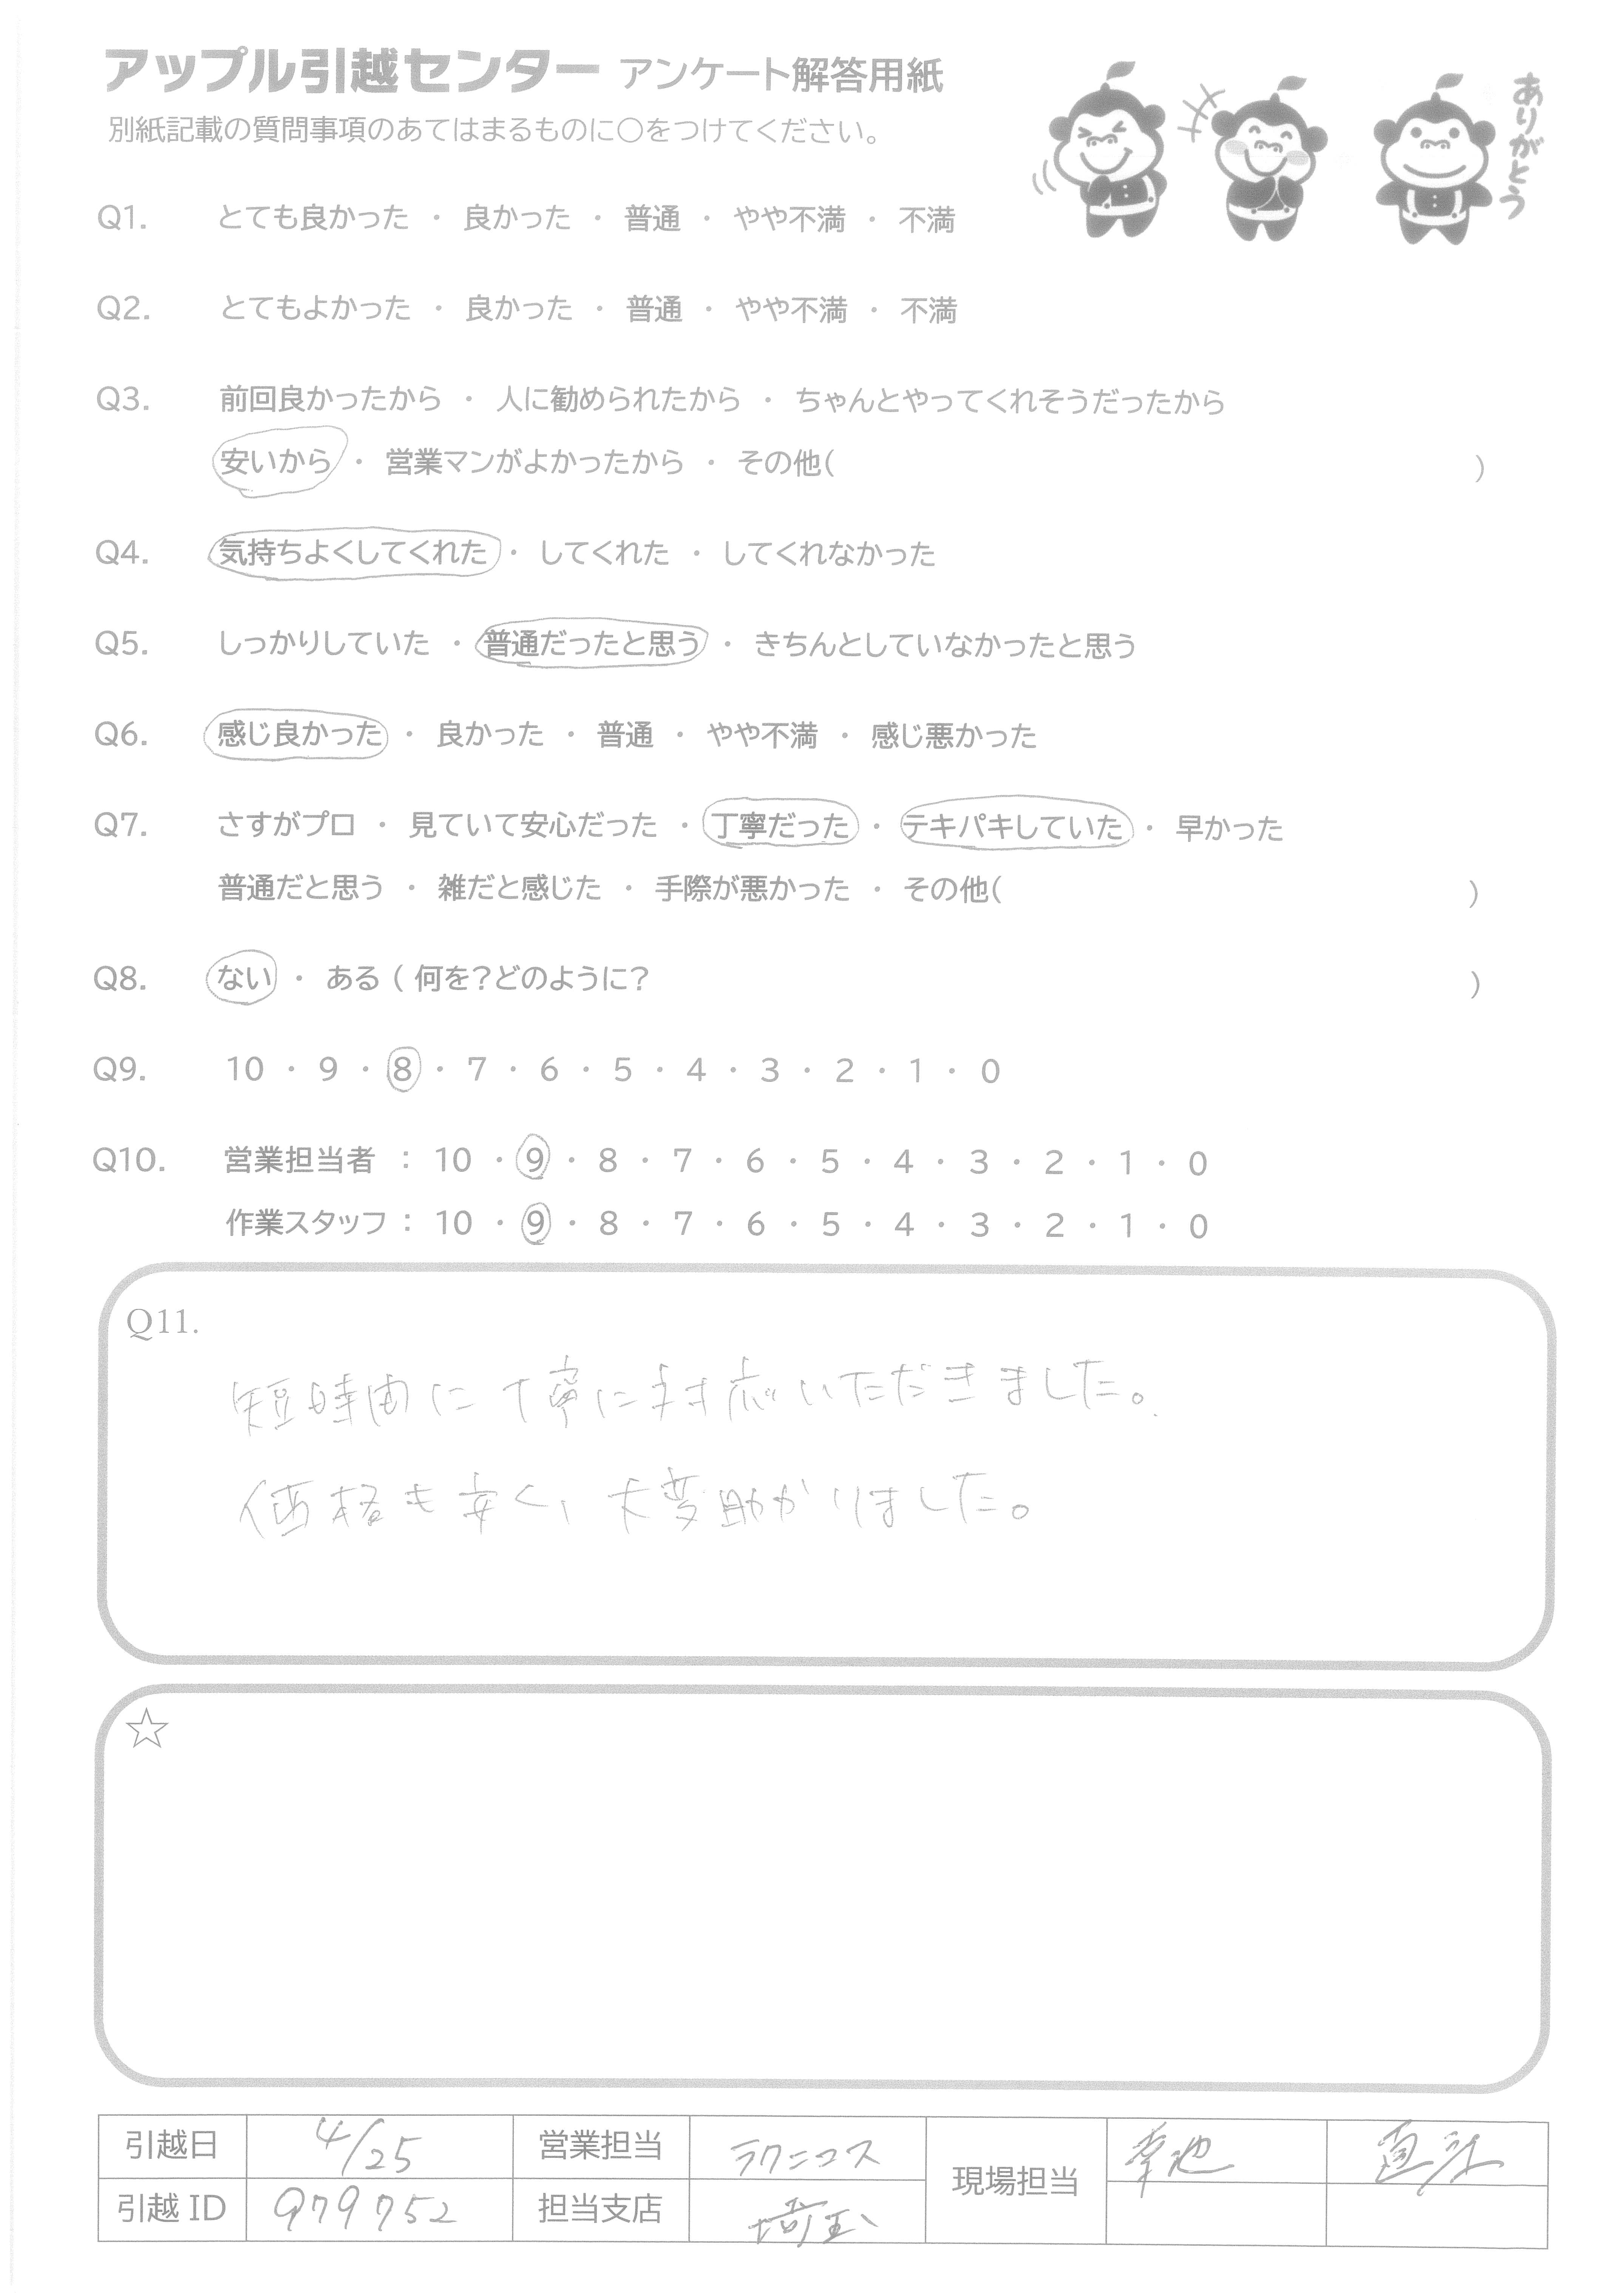 アップル引越センター アンケート解答用紙
別紙記載の質問事項のあてはまるものに○をつけてください。
ありがとう
Q1. とても良かった ・ 良かった ・ 普通 ・ やや不満 ・ 不満
Q2. とてもよかった ・ 良かった ・ 普通 ・ やや不満 ・ 不満
Q3. 前回良かったから ・ 人に勧められたから ・ ちゃんとやってくれそうだったから
安いから ・ 営業マンがよかったから ・ その他( )
Q4. 気持ちよくしてくれた ・ してくれた ・ してくれなかった
Q5. しっかりしていた ・ 普通だったと思う ・ きちんとしていなかったと思う
Q6. 感じ良かった ・ 良かった ・ 普通 ・ やや不満 ・ 感じ悪かった
Q7. さすがプロ ・ 見ていて安心だった ・ 丁寧だった ・ テキパキしていた ・ 早かった
普通だと思う ・ 雑だと感じた ・ 手際が悪かった ・ その他( )
Q8. ない ・ ある ( 何を?どのように? )
Q9. 10 ・ 9 ・ 8 ・ 7 ・ 6 ・ 5 ・ 4 ・ 3 ・ 2 ・ 1 ・ 0
Q10. 営業担当者 : 10 ・ 9 ・ 8 ・ 7 ・ 6 ・ 5 ・ 4 ・ 3 ・ 2 ・ 1 ・ 0
作業スタッフ : 10 ・ 9 ・ 8 ・ 7 ・ 6 ・ 5 ・ 4 ・ 3 ・ 2 ・ 1 ・ 0
Q11.
短時間に丁寧に対応いただきました。
価格も安く、大変助かりました。
☆
引越日 4/25 営業担当 ラクニコス 現場担当
引越ID 979752 担当支店 埼玉